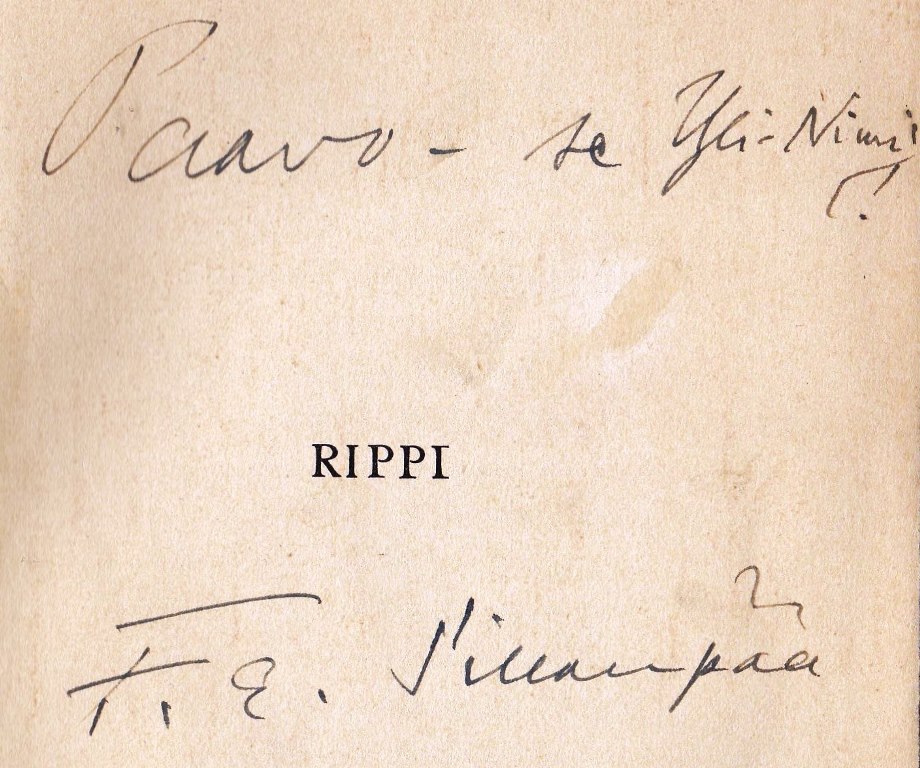 Paavo - se Yli-Nimi
RIPPI
F. E. Sillanpää